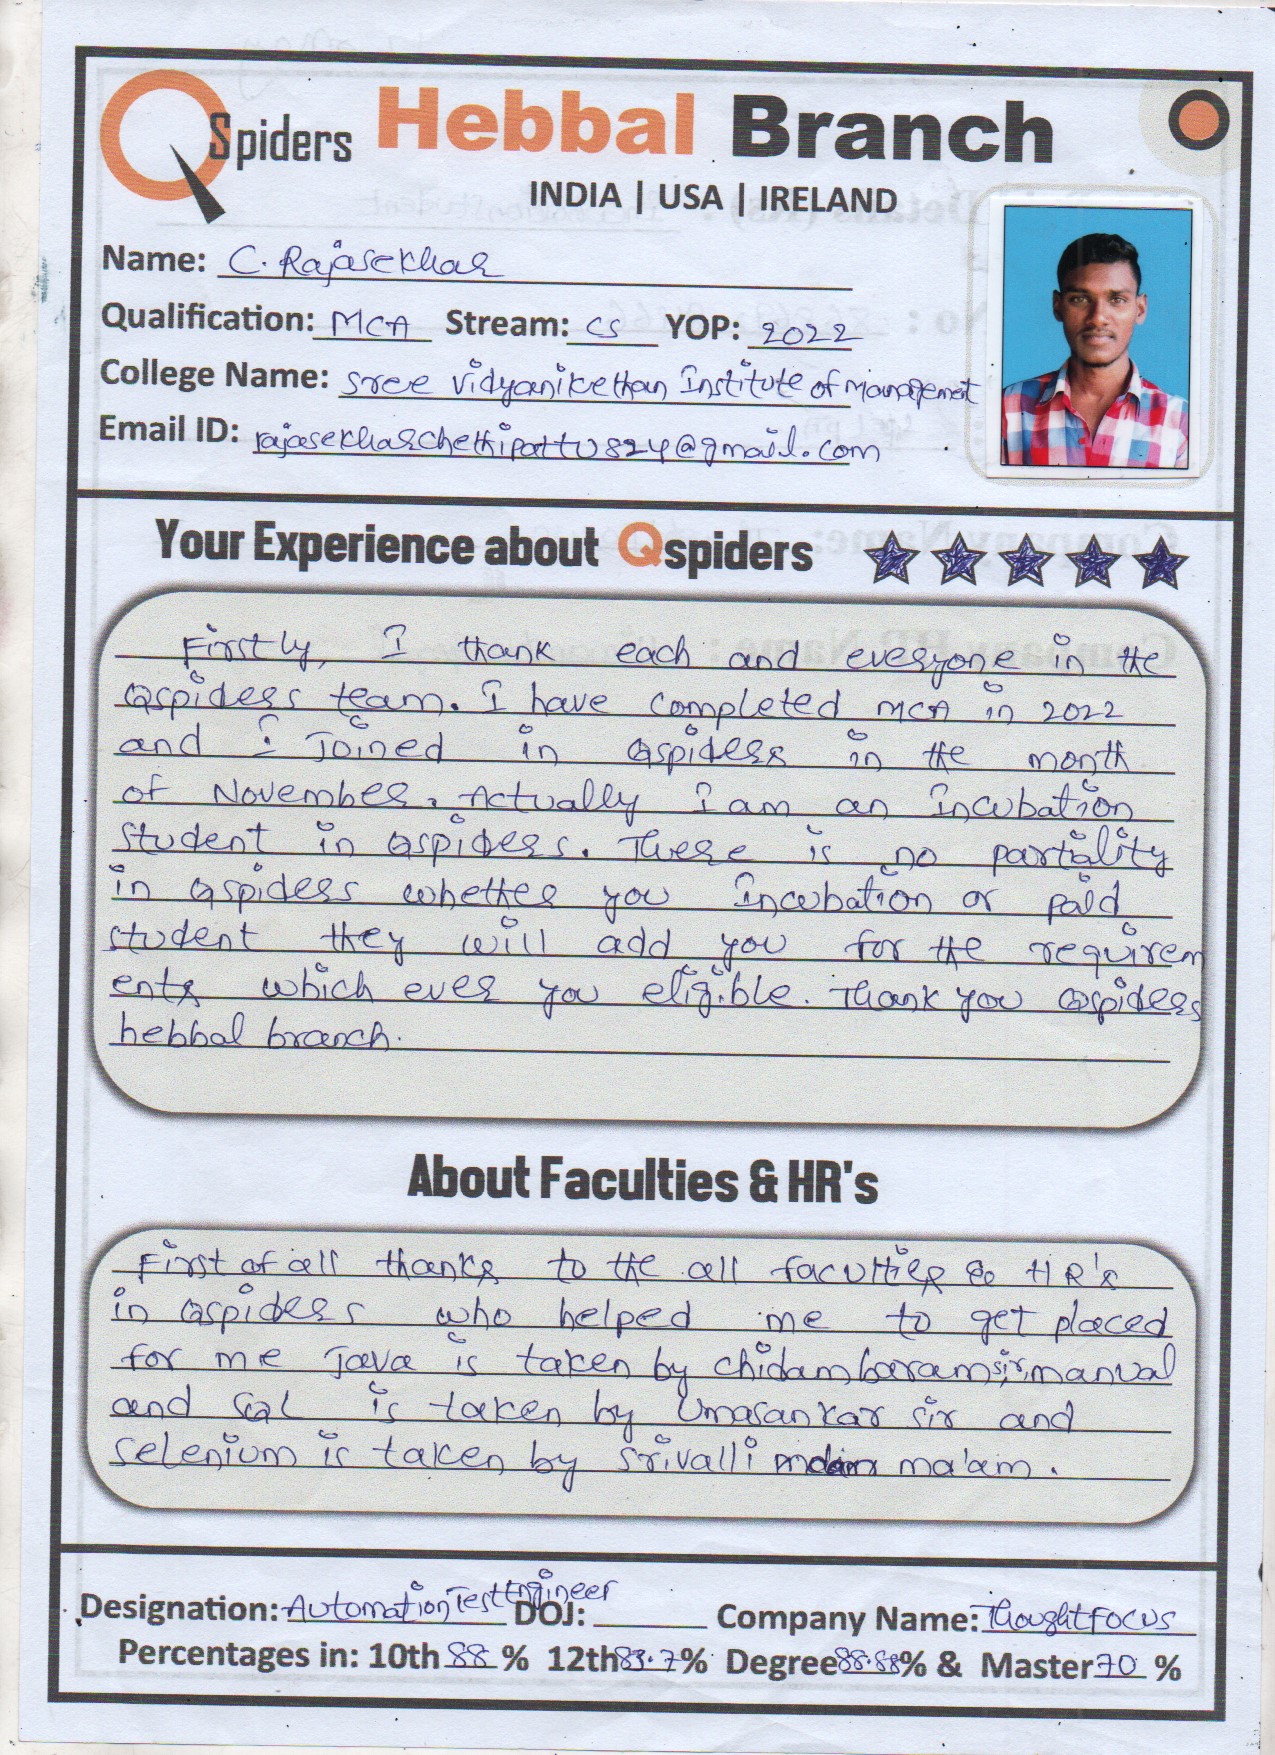 QSpiders Hebbal Branch
INDIA | USA | IRELAND
Name: C. Rajasekhar
Qualification: MCA Stream: CS YOP: 2022
College Name: sree vidyanikethan Institute of management
Email ID: rajasekharchethipattu824@gmail.com
Your Experience about Qspiders
Firstly, I thank each and everyone in the
Qspiders team. I have completed MCA in 2022
and I Joined in Qspiders in the month
of November. Actually I am an Incubation
student in Qspiders. There is no partiality
in Qspiders whether you Incubation or paid
student they will add you for the requirem
ents which ever you eligible. Thank you Qspiders
hebbal branch.
About Faculties & HR's
First of all thanks to the all faculties & HR's
in Qspiders who helped me to get placed
for me Java is taken by chidambaram sir, manual
and SQL is taken by Umasankar sir and
selenium is taken by Srivalli ma'am.
Designation: Automation Test Engineer DOJ: Company Name: ThoughtFocus
Percentages in: 10th 88 % 12th 83.7% Degree 88.88% & Master 70 %